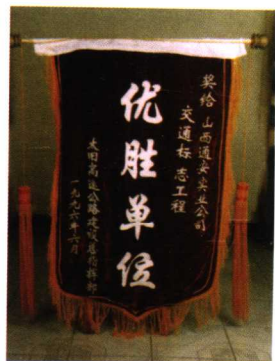 奖给 山西通安实业公司
交通标志工程
优胜单位
太旧高速公路建设总指挥部
一九九六年六月